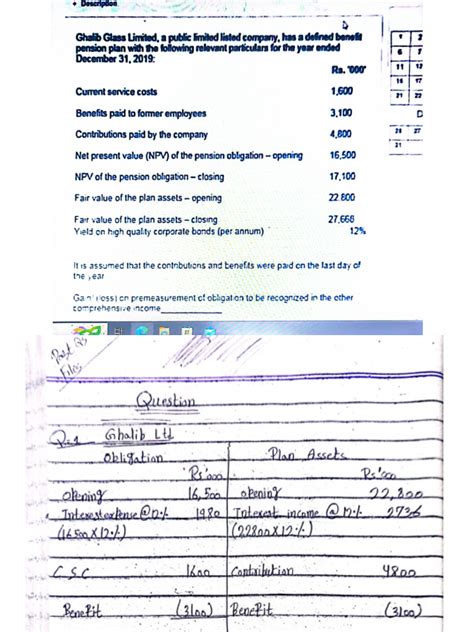 • Description
Ghalib Glass Limited, a public limited listed company, has a defined benefit
pension plan with the following relevant particulars for the year ended
December 31, 2019:
Rs. '000'
Current service costs 1,600
Benefits paid to former employees 3,100
Contributions paid by the company 4,800
Net present value (NPV) of the pension obligation – opening 16,500
NPV of the pension obligation – closing 17,100
Fair value of the plan assets – opening 22,800
Fair value of the plan assets – closing 27,668
Yield on high quality corporate bonds (per annum) 12%
It is assumed that the contributions and benefits were paid on the last day of
the year
Gain (loss) on premeasurement of obligation to be recognized in the other
comprehensive income
1 2
6 7
11 12
16 17
21 22
D
26 27
21
Question
Q=1 Ghalib Ltd
Obligation Plan Assets
Rs'000 Rs'000
opening 16,500 opening 22,800
Interest expense @12% 1980 Interest income @12% 2736
(16500X12%) (22800X12%)
C.S.C 1600 Contribution 4800
Benefit (3100) Benefit (3100)